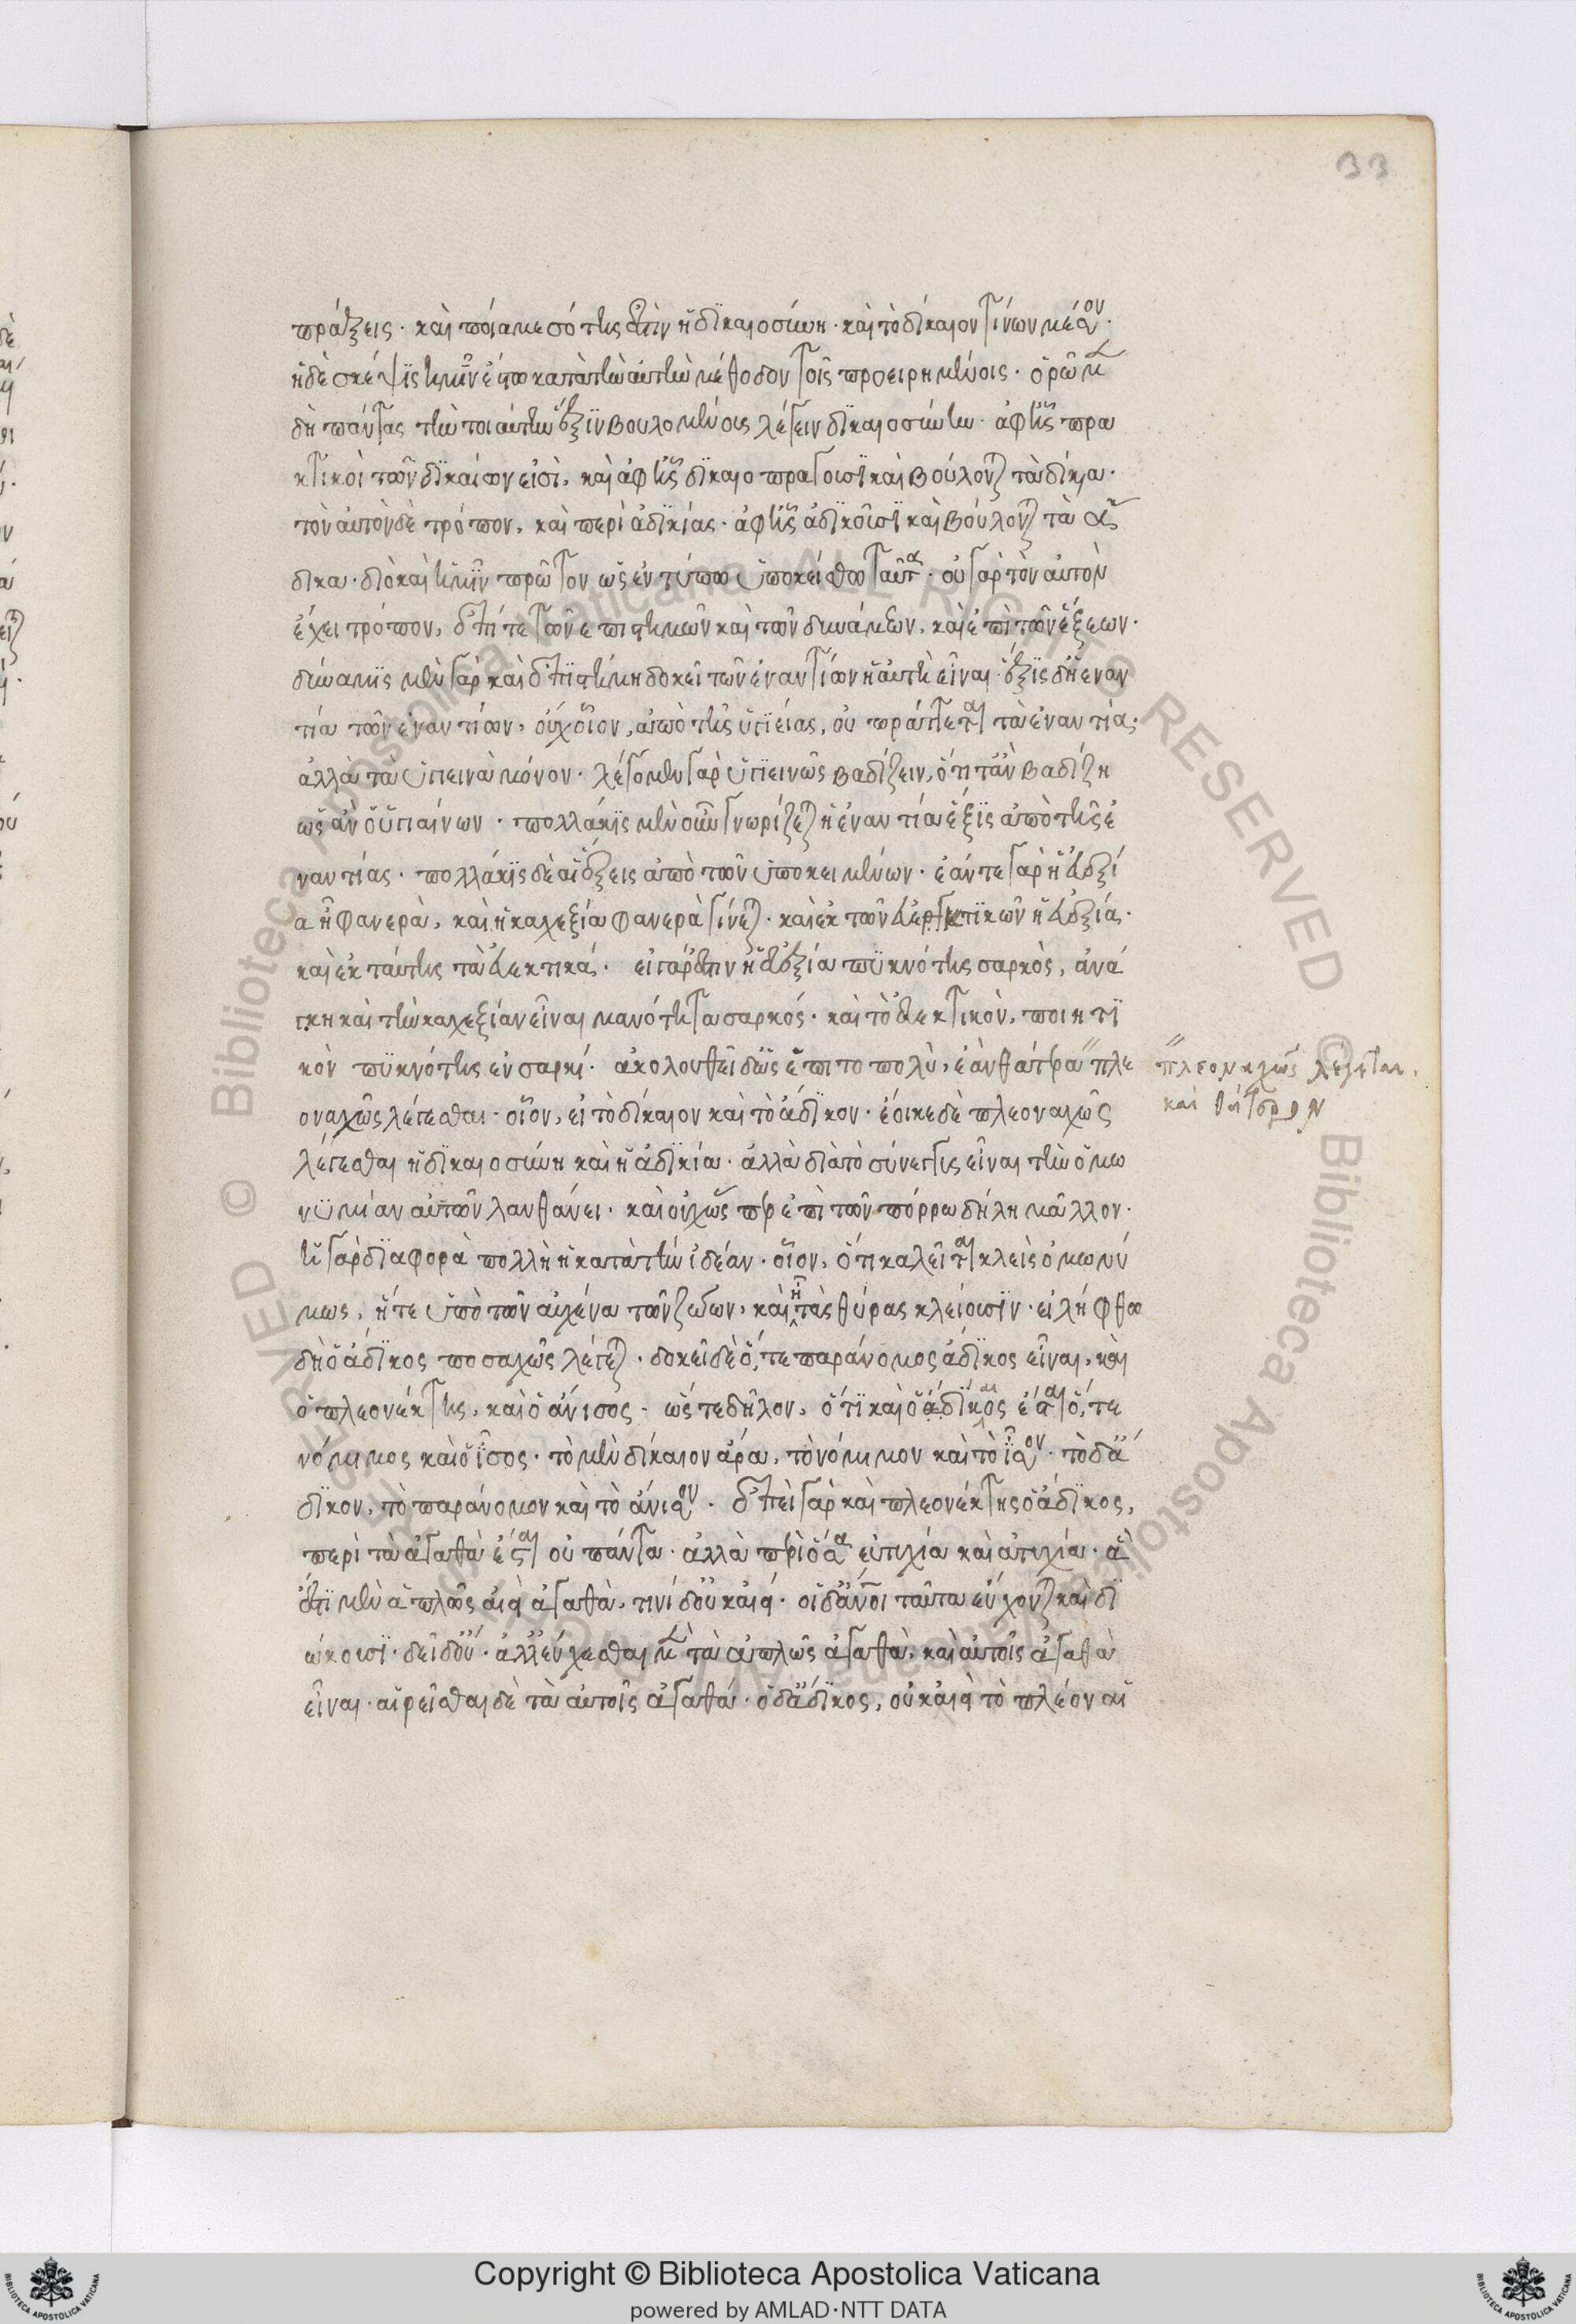 33
πράξεις· καὶ ποία μεσότης ἐστὶν ἡ δικαιοσύνη· καὶ τὸ δίκαιον τίνων μέσον·
ἡ δὲ σκέψις ἡμῖν ἔστω κατὰ τὴν αὐτὴν μέθοδον τοῖς προειρημένοις· ὁρῶμεν
δὴ πάντας τὴν τοιαύτην ἕξιν βουλομένους λέγειν δικαιοσύνην· ἀφ' ἧς πρα
κτικοὶ τῶν δικαίων εἰσὶ, καὶ ἀφ' ἧς δικαιοπραγοῦσι καὶ βούλονται τὰ δίκαια·
τὸν αὐτὸν δὲ τρόπον, καὶ περὶ ἀδικίας· ἀφ' ἧς ἀδικοῦσι καὶ βούλονται τὰ ἄ
δικα· διὸ καὶ ἡμῖν πρῶτον ὡς ἐν τύπῳ ὑποκείσθω ταῦτα· οὐ γὰρ τὸν αὐτὸν
ἔχει τρόπον, ἐπί τε τῶν ἐπιστημῶν καὶ τῶν δυνάμεων, καὶ ἐπὶ τῶν ἕξεων·
δύναμις μὲν γὰρ καὶ ἐπιστήμη δοκεῖ τῶν ἐναντίων ἡ αὐτὴ εἶναι· ἕξις δ' ἡ ἐναν
τία τῶν ἐναντίων, οὔ· οἷον, ἀπὸ τῆς ὑγιείας, οὐ πράττεται τὰ ἐναντία·
ἀλλὰ τὰ ὑγιεινὰ μόνον· λέγομεν γὰρ ὑγιεινῶς βαδίζειν, ὅταν βαδίζη
ὡς ἂν ὁ ὑγιαίνων· πολλάκις μὲν οὖν γνωρίζεται ἡ ἐναντία ἕξις ἀπὸ τῆς ἐ
ναντίας· πολλάκις δὲ αἱ ἕξεις ἀπὸ τῶν ὑποκειμένων· ἐάν τε γὰρ ἡ εὐεξί
α ᾖ φανερὰ, καὶ ἡ καχεξία φανερὰ γίνεται· καὶ ἐκ τῶν εὐεκτικῶν ἡ εὐεξία·
καὶ ἐκ ταύτης τὰ εὐεκτικά· εἰ γάρ ἐστιν ἡ εὐεξία πυκνότης σαρκὸς, ἀνά
γκη καὶ τὴν καχεξίαν εἶναι μανότητα σαρκός· καὶ τὸ εὐεκτικὸν, ποιητι
κὸν πυκνότης ἐν σαρκί· ἀκολουθεῖ δ' ὡς ἐπιτοπολὺ, ἐὰν θάτερα πλε
οναχῶς λέγεσθαι· οἷον, εἰ τὸ δίκαιον καὶ τὸ ἄδικον· ἔοικε δὲ πλεοναχῶς
λέγεσθαι ἡ δικαιοσύνη καὶ ἡ ἀδικία· ἀλλὰ διὰ τὸ σύνεγγυς εἶναι τὴν ὁμω
νυμίαν αὐτῶν λανθάνει· καὶ οὐχ ὥσπερ ἐπὶ τῶν πόρρω δήλη μᾶλλον·
ἡ γὰρ διαφορὰ πολλὴ ἡ κατὰ τὴν ἰδέαν· οἷον, ὅτι καλεῖται κλεὶς ὁμωνύ
μως, ἥ τε ὑπὸ τὸν αὐχένα τῶν ζώων, καὶ ᾗ τὰς θύρας κλείουσιν· εἰλήφθω
δὴ ὁ ἄδικος ποσαχῶς λέγεται· δοκεῖ δὲ ὅ,τε παράνομος ἄδικος εἶναι, καὶ
ὁ πλεονέκτης, καὶ ὁ ἄνισος· ὥστε δῆλον, ὅτι καὶ ὁ δίκαιος ἔσται ὅ,τε
νόμιμος καὶ ὁ ἴσος· τὸ μὲν δίκαιον ἄρα, τὸ νόμιμον καὶ τὸ ἴσον· τὸ δ' ἄ
δικον, τὸ παράνομον καὶ τὸ ἄνισον· ἐπεὶ γὰρ καὶ πλεονέκτης ὁ ἄδικος,
περὶ τὰ ἀγαθὰ ἔσται οὐ πάντα· ἀλλὰ περὶ ὅσα εὐτυχία καὶ ἀτυχία· ἃ
ἐστι μὲν ἁπλῶς ἀεὶ ἀγαθὰ, τινὶ δ' οὐκ ἀεί· οἱ δ' ἄνθρωποι ταῦτα εὔχονται καὶ δι
ώκουσι· δεῖ δ' οὔ· ἀλλ' εὔχεσθαι μὲν τὰ ἁπλῶς ἀγαθὰ, καὶ αὐτοῖς ἀγαθὰ
εἶναι· αἱρεῖσθαι δὲ τὰ αὐτοῖς ἀγαθά· ὁ δ' ἄδικος, οὐκ ἀεὶ τὸ πλέον αἱ
πλεοναχῶς λέγεται,
καὶ θάτερον
© Biblioteca Apostolica Vaticana ALL RIGHTS RESERVED
Copyright © Biblioteca Apostolica Vaticana
powered by AMLAD·NTT DATA